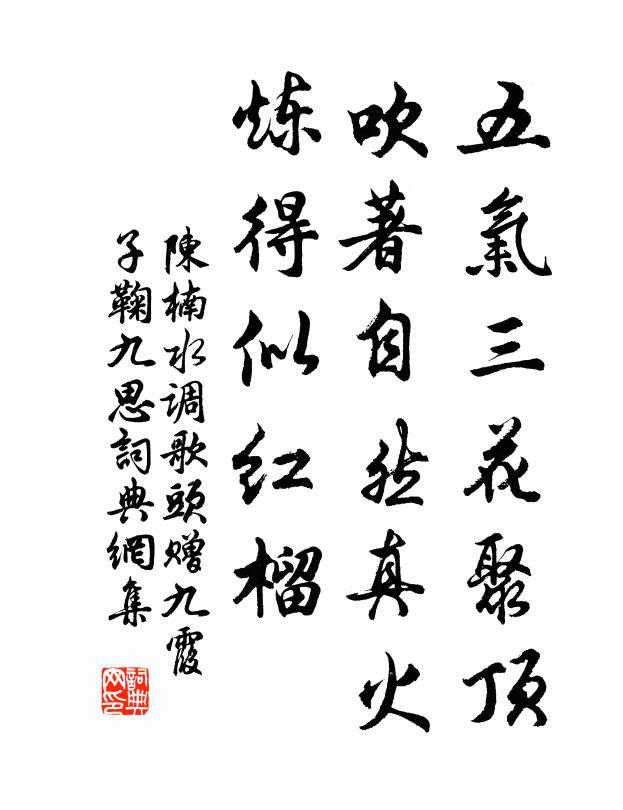 五氣三花聚顶
吹著自然真火
炼得似红榴
陳楠水调歌頭赠九霞
子鞠九思詞典網集
詞典
网印